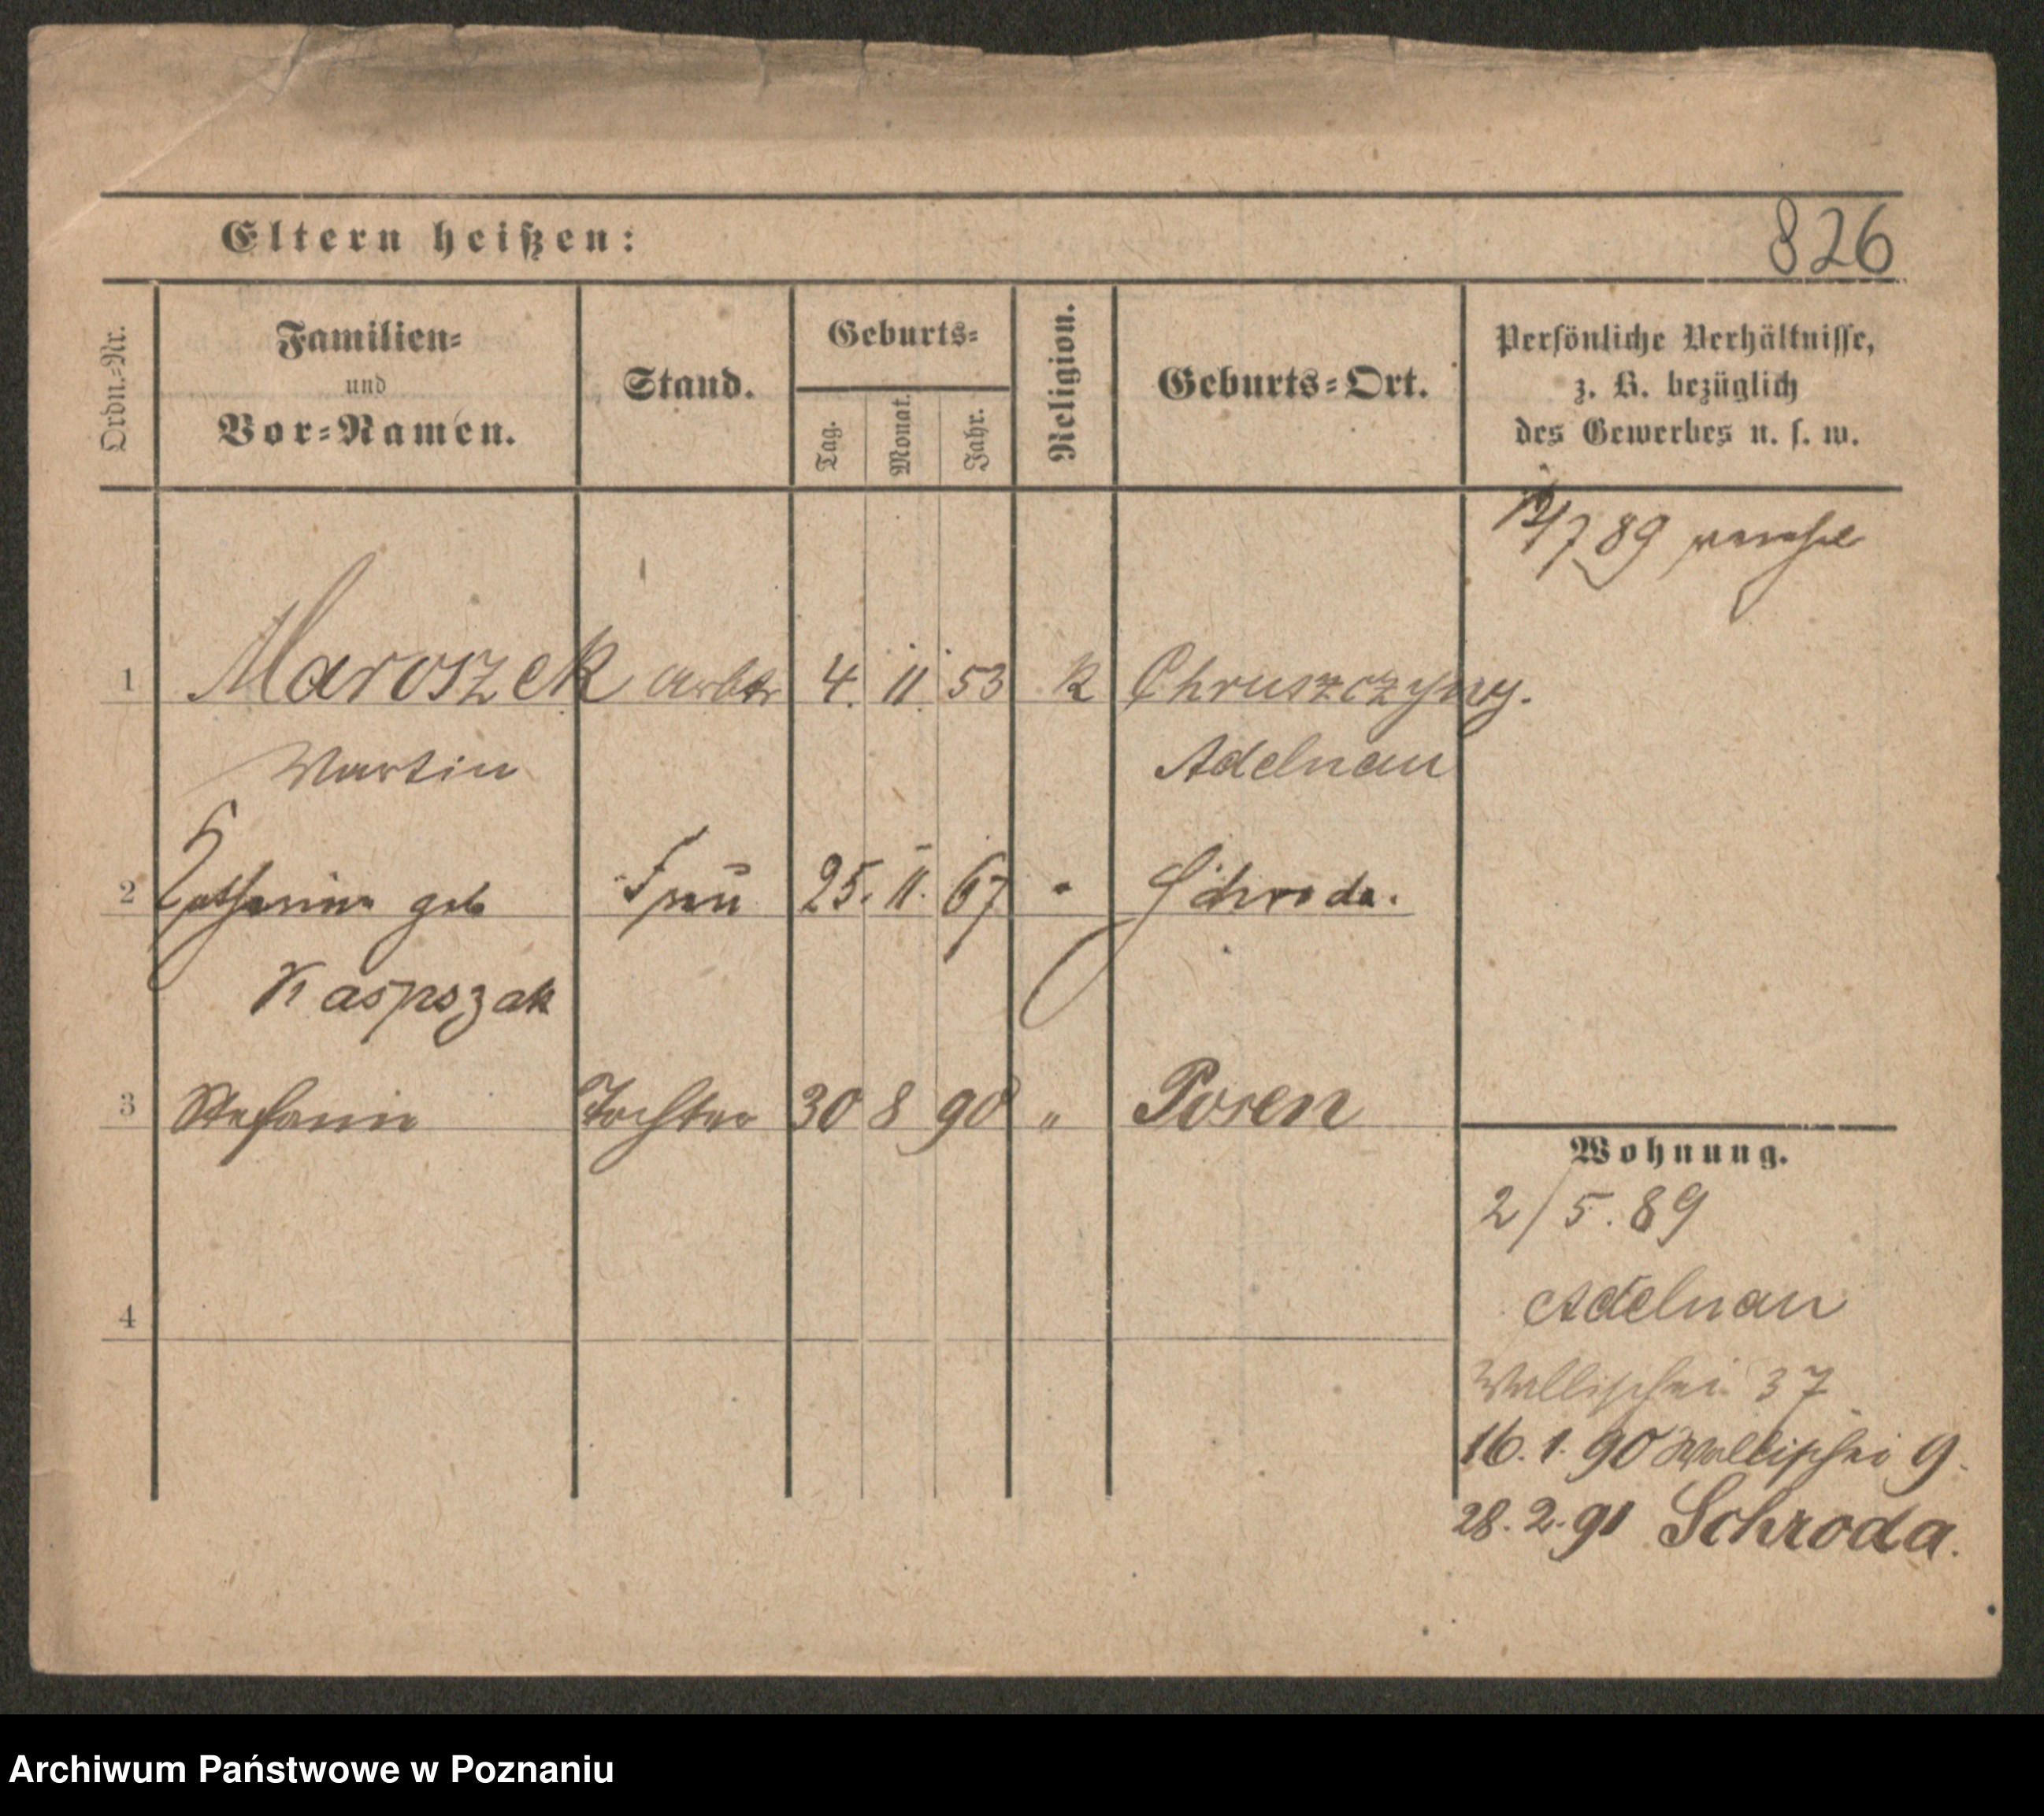 826
Eltern heißen:
Ordn.-Nr.
Familien- und Vor-Namen.
Stand.
Geburts-
Tag.
Monat.
Jahr.
Religion.
Geburts-Ort.
Persönliche Verhältnisse,
z. B. bezüglich
des Gewerbes u. s. w.
12/7 89
1 Maroszek Arbtr 4. 11. 53 K Chruszczyny.
Martin Adelnau
2 Catharina geb Frau 25. 11. 67 " Schroda.
Kaspszak
3 Stefanie Tochter 30 8 90 " Posen
4
Wohnung.
2/5. 89
Adelnau
Wallischei 37
16. 1. 90 Wallischei 9.
28. 2. 91 Schroda.
Archiwum Państwowe w Poznaniu